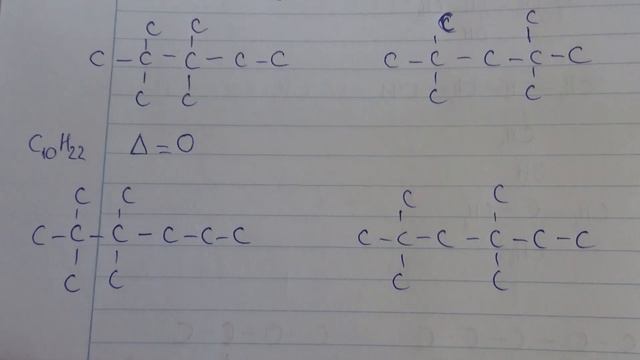 C C C C
C - C - C - C - C C - C - C - C - C
C C C C
C10H22 Δ = 0
C C C C
C - C - C - C - C - C C - C - C - C - C - C
C C C C